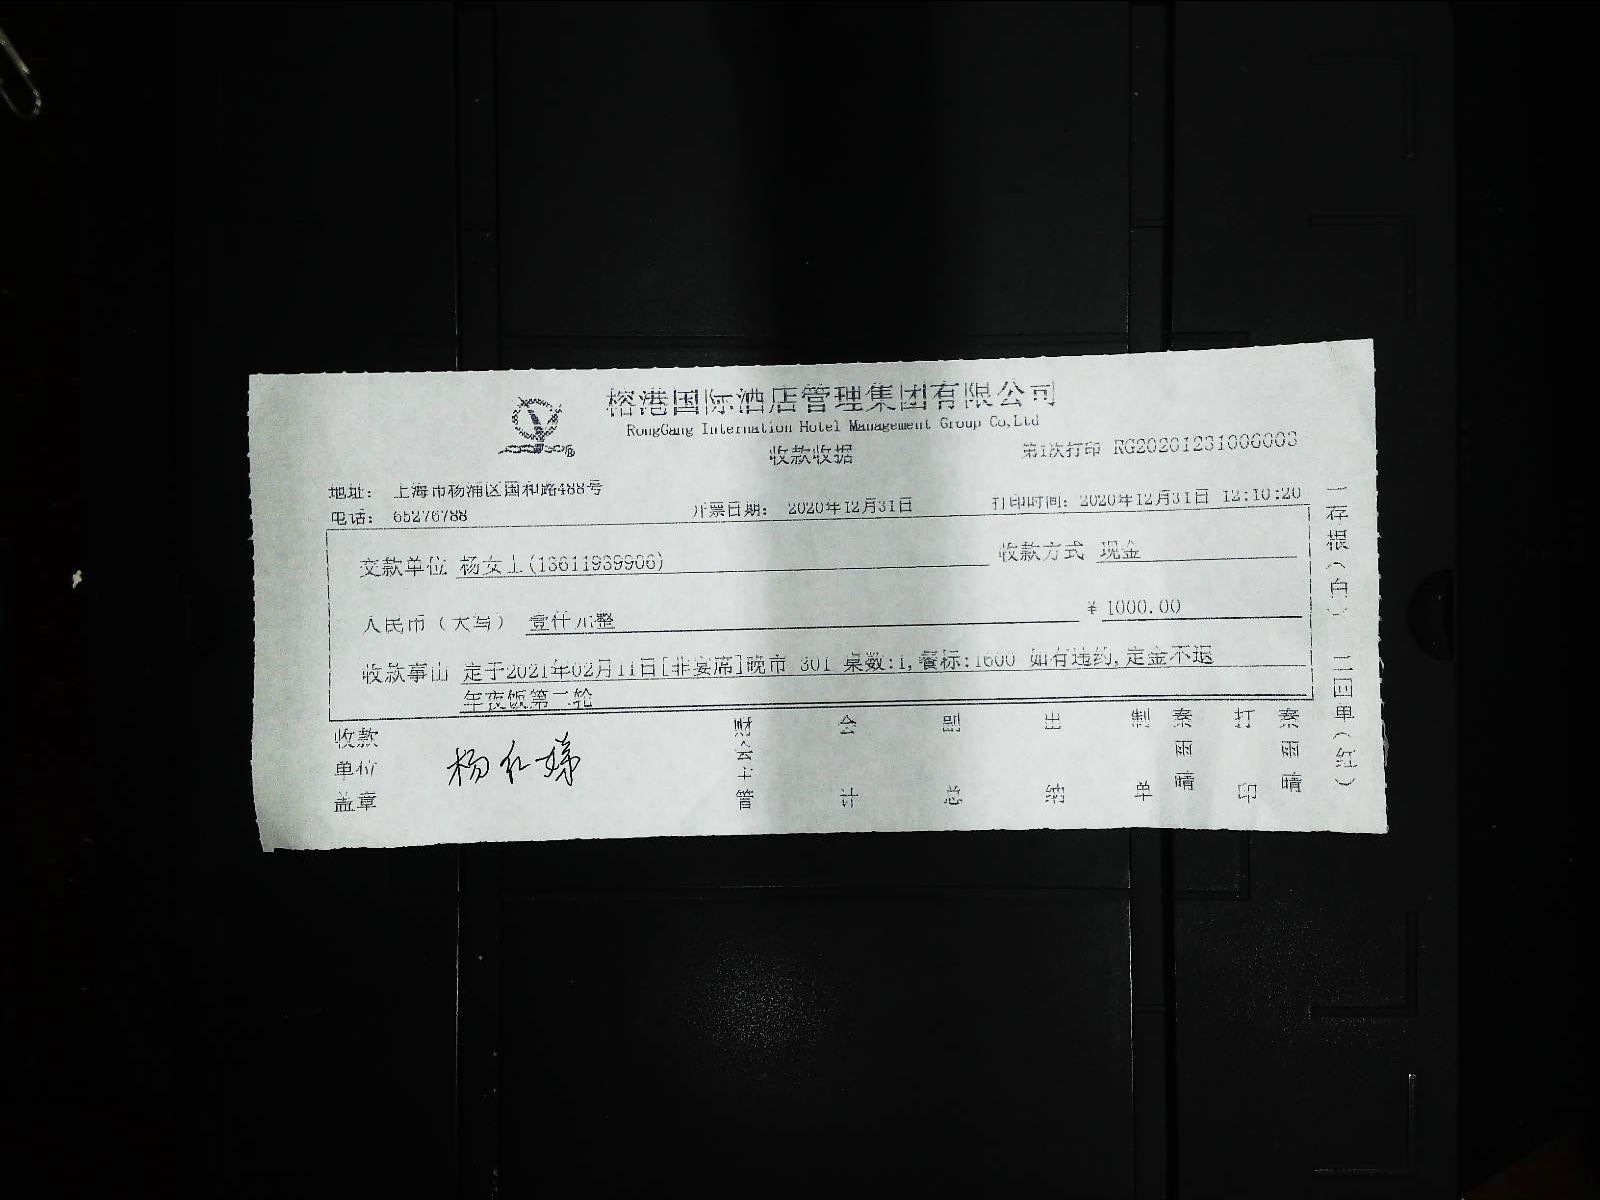 榕港国际酒店管理集团有限公司
RongGang Internation Hotel Management Group Co,Ltd
收款收据
第1次打印 RG20201231006003
地址: 上海市杨浦区国和路488号
电话: 65276788 开票日期: 2020年12月31日 打印时间: 2020年12月31日 12:10:20
交款单位 杨女士(13611939906) 收款方式 现金
人民币(大写) 壹仟元整 ¥ 1000.00
收款事由 定于2021年02月11日[非宴席]晚市 301 桌数:1,餐标:1600 如有违约,定金不退
年夜饭第二轮
收款单位盖章 杨红娣 会计 出纳 制单 秦雨晴 打印 秦雨晴
一存根(白) 二回单(红)